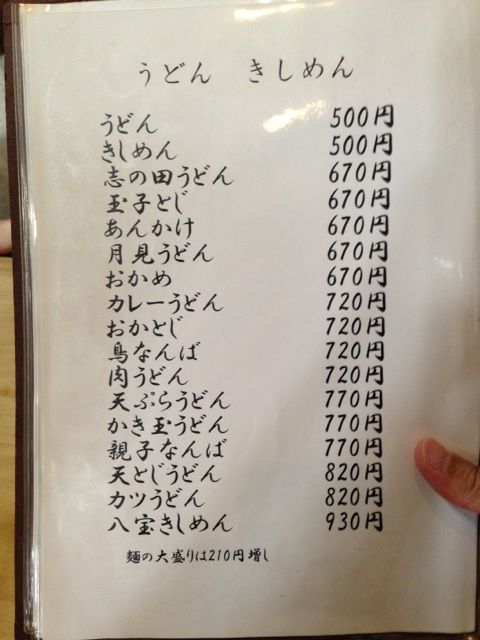 うどん　きしめん
うどん 500円
きしめん 500円
志の田うどん 670円
玉子とじ 670円
あんかけ 670円
月見うどん 670円
おかめ 670円
カレーうどん 720円
おかとじ 720円
鳥なんば 720円
肉うどん 720円
天ぷらうどん 770円
かき玉うどん 770円
親子なんば 770円
天とじうどん 820円
カツうどん 820円
八宝きしめん 930円
麺の大盛りは210円増し